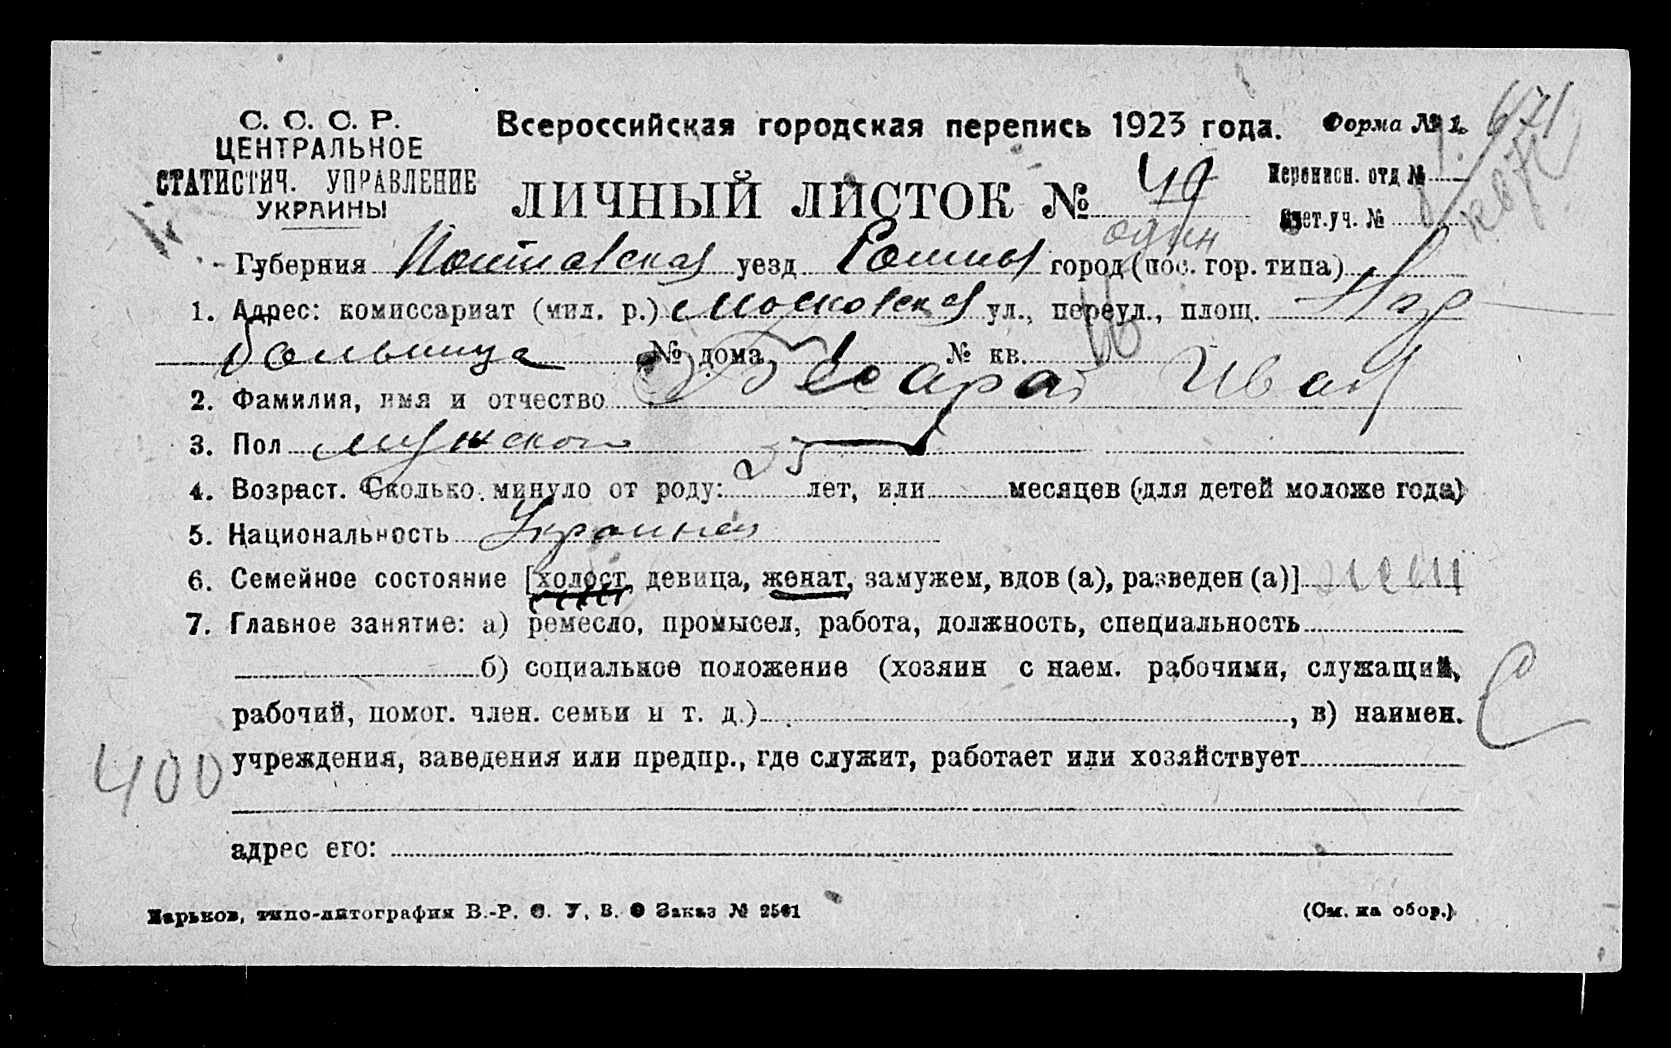 С. С. С. Р.
ЦЕНТРАЛЬНОЕ
СТАТИСТИЧ. УПРАВЛЕНИЕ
УКРАИНЫ
Всероссийская городская перепись 1923 года. Форма № 1.
671
ЛИЧНЫЙ ЛИСТОК № 49 Переписн. отд №
один Счет.уч. №
Губерния Полтавская уезд Ромны город (пос. гор. типа)
1. Адрес: комиссариат (мил. р.) Московская ул., переул., площ.
больница № дома № кв.
2. Фамилия, имя и отчество Бесараб Иван
3. Пол мужской
4. Возраст. Сколько минуло от роду: 25 лет, или месяцев (для детей моложе года)
5. Национальность Украинец
6. Семейное состояние [холост, девица, женат, замужем, вдов (а), разведен (а)]
7. Главное занятие: а) ремесло, промысел, работа, должность, специальность
б) социальное положение (хозяин с наем. рабочими, служащий,
рабочий, помог. член. семьи и т. д.) , в) наимен.
400 учреждения, заведения или предпр., где служит, работает или хозяйствует
адрес его:
Харьков, типо-литография В.-Р. С. У. В. О Заказ № 2561 (См. на обор.)